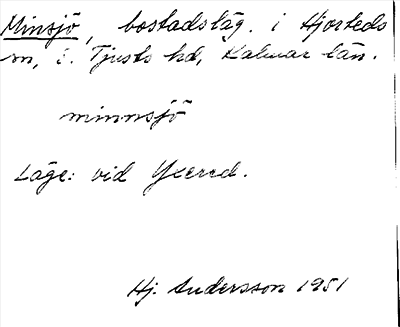 Minsjö, bostadsläg. i Hjorteds
sn, S. Tjusts hd, Kalmar län.
minnsjö
Läge: vid Yxered.
Hj. Andersson 1951